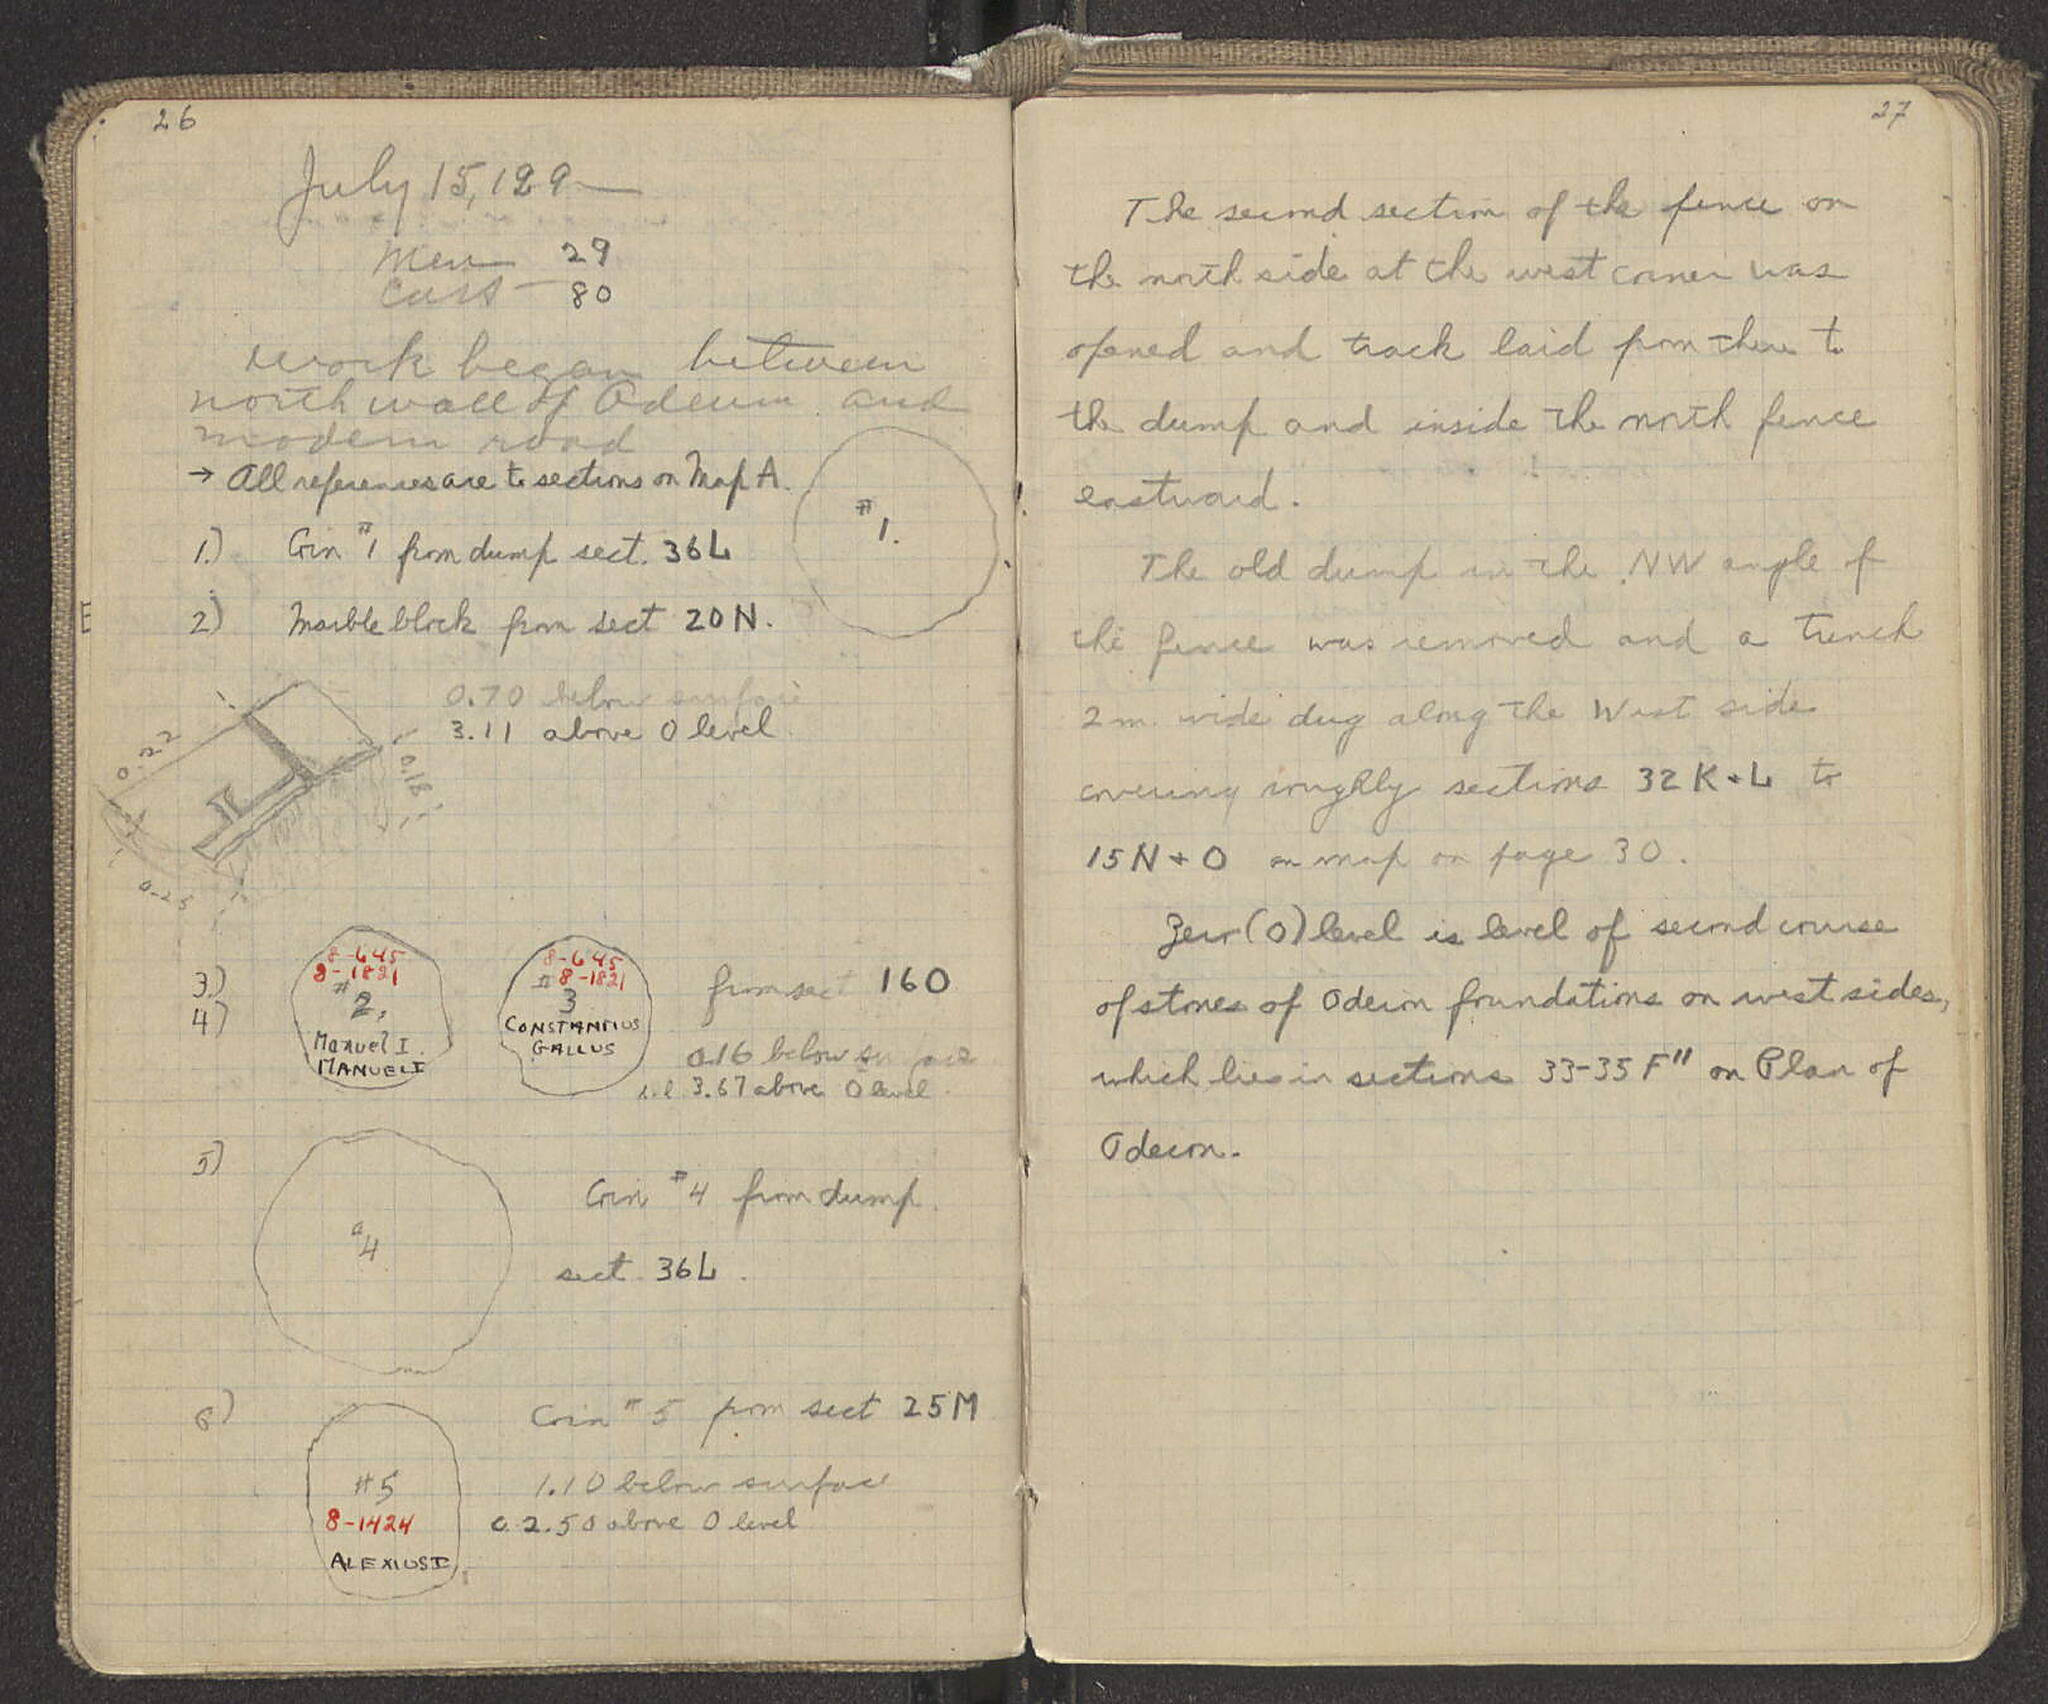 26
July 15, 129
Men 29
Carts 80
Work began between
north wall of Odeum and
modern road
→ All references are to sections on Map A.
#1.
1.) Coin #1 from dump sect. 36L
2) Marble block from sect 20N.
0.70 below surface
3.11 above 0 level
0.22
0.18
0.25
3.)
4)
8-645
8-1821
#2,
Manuel I
MANUEL I
8-645
#8-1821
3
CONSTANTIUS
GALLUS
from sect 16O
0.16 below surface
i.e. 3.67 above 0 level
5)
#4
Coin #4 from dump
sect. 36L.
6)
#5
8-1424
ALEXIUS I
Coin #5 from sect 25M
1.10 below surface
c. 2.50 above 0 level
27
The second section of the fence on
the north side at the west corner was
opened and track laid from there to
the dump and inside the north fence
eastward.
The old dump in the NW angle of
the fence was removed and a trench
2 m. wide dug along the West side
covering roughly sections 32 K + L to
15 N + O on map on page 30.
Zero (0) level is level of second course
of stones of Odeion foundations on west sides,
which lies in sections 33-35 F" on Plan of
Odeion.